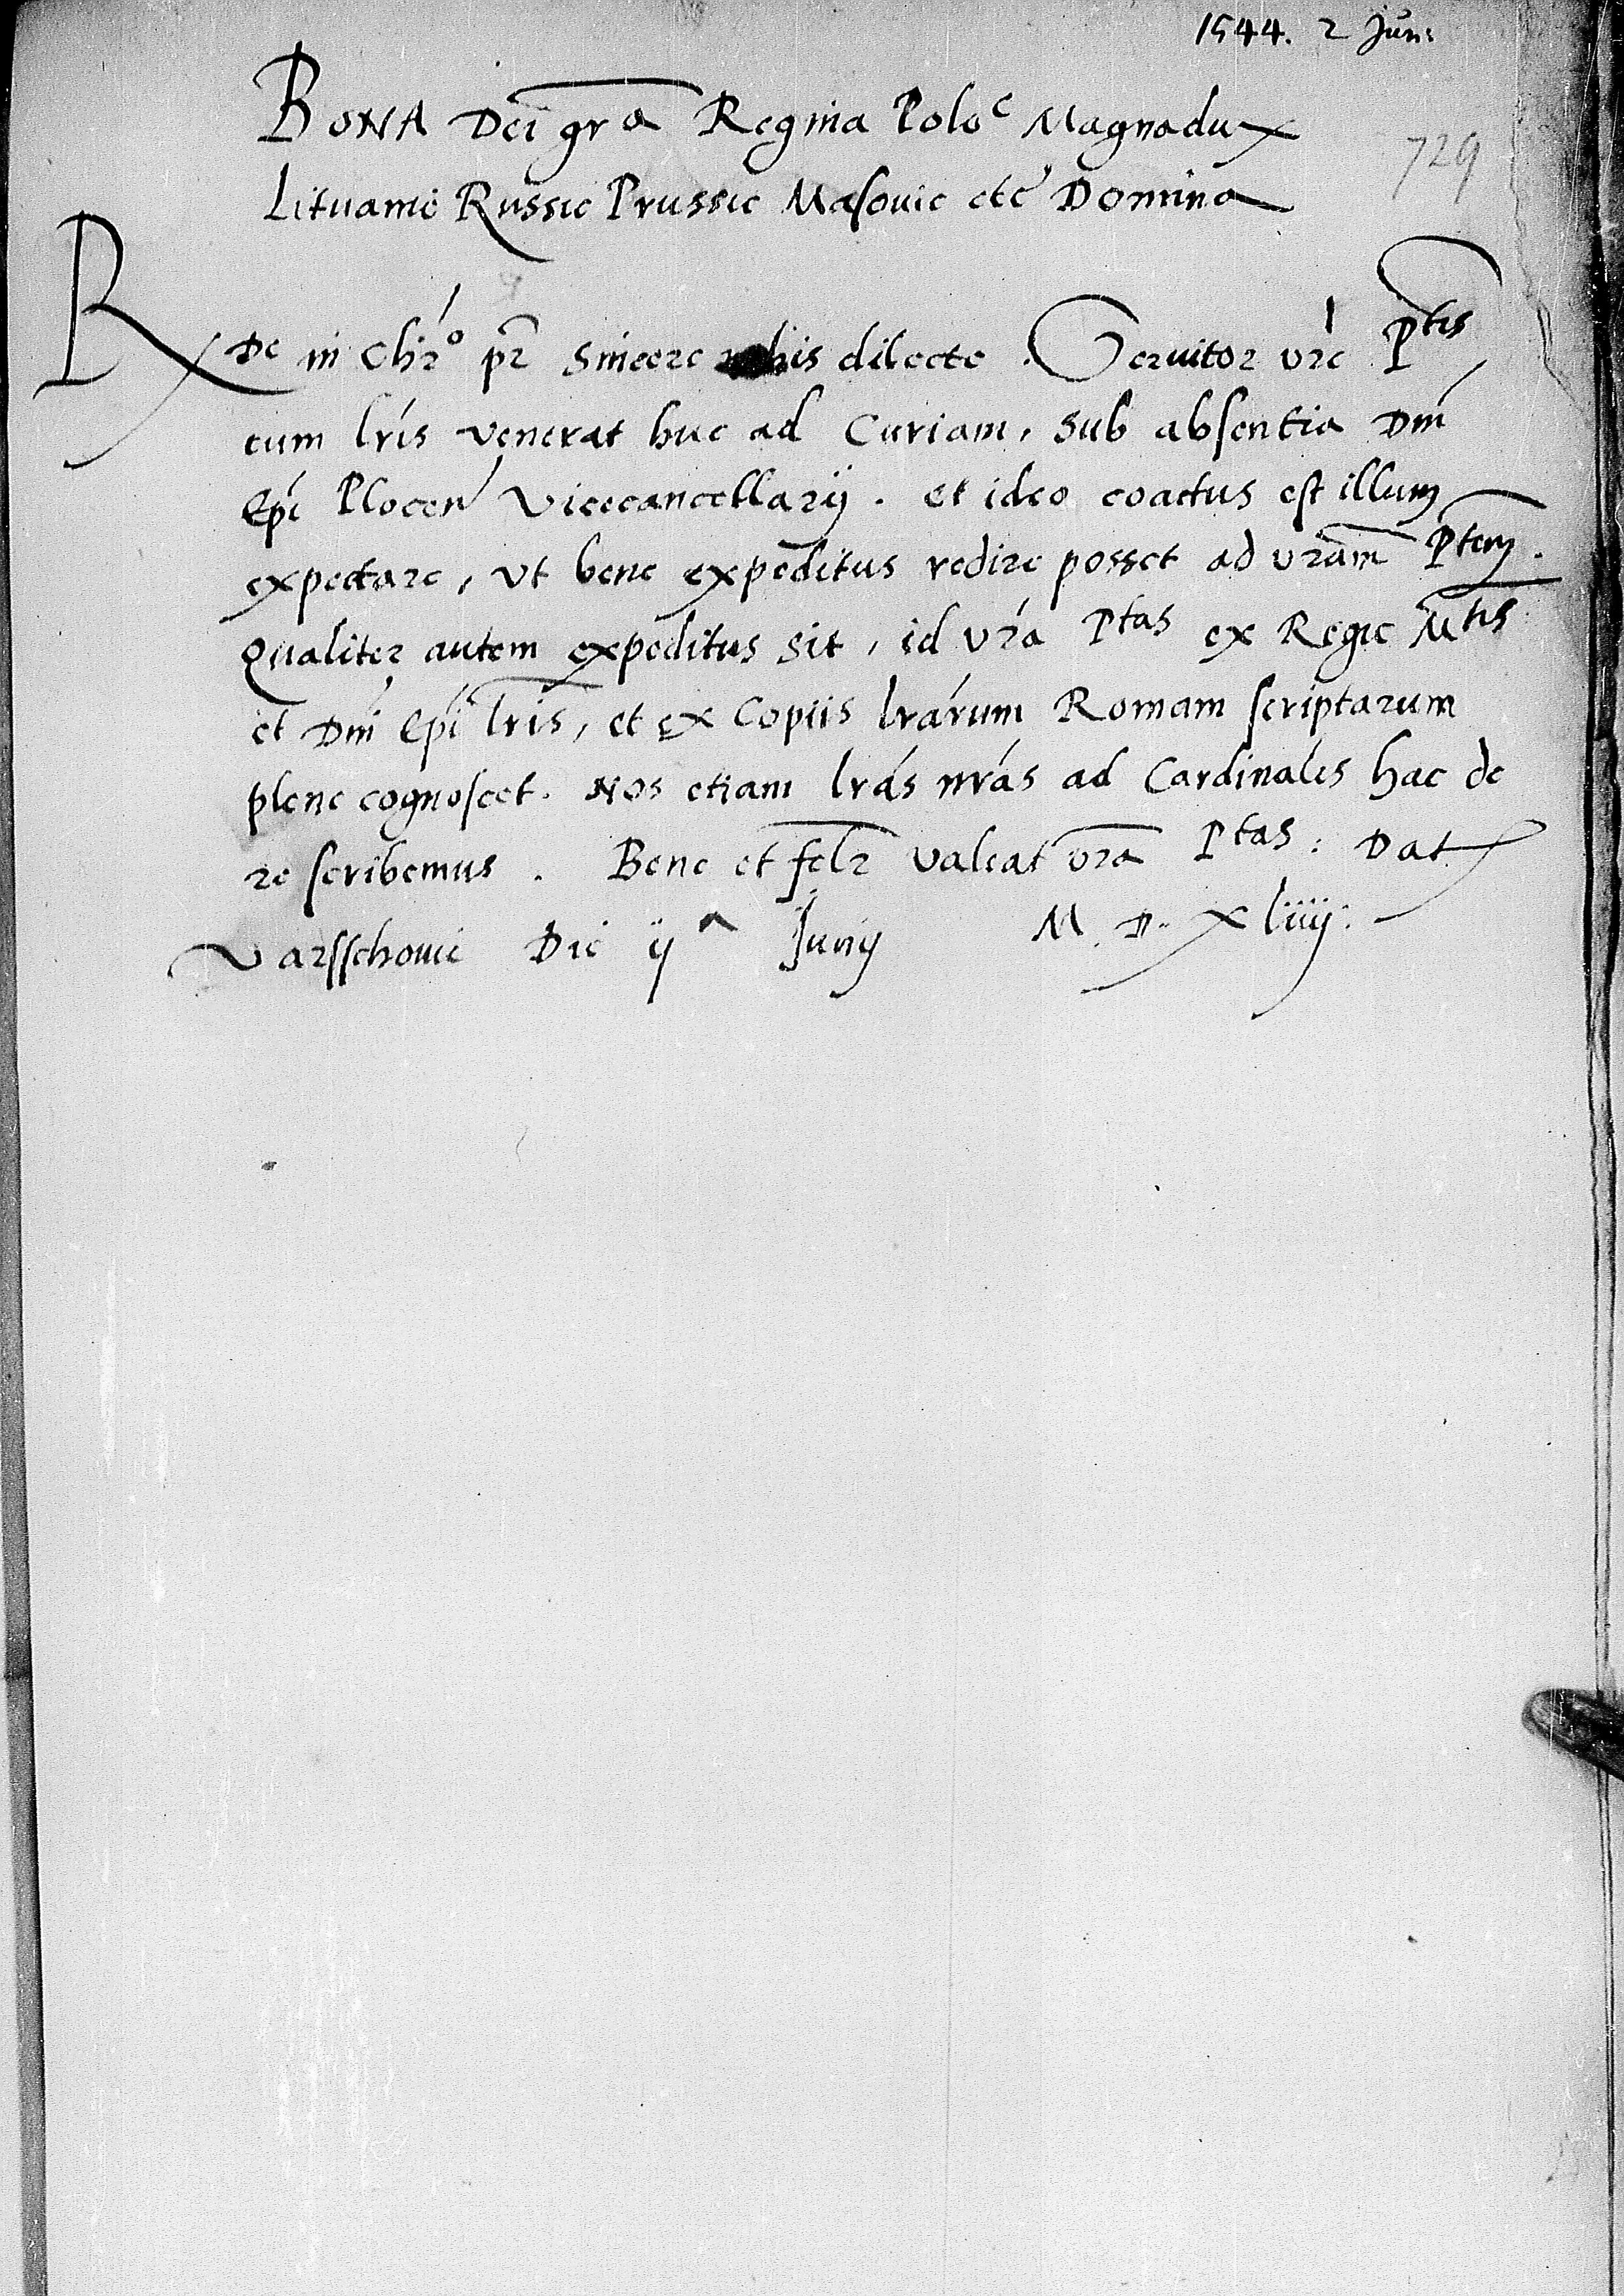 1544. 2 Juni
BONA Dei gra Regina Poloe Magnadux
729
Lituanie Russie Prussie Masouie etc Domina
Rde in Chro pr sincere nobis dilecte. Seruitor vre Ptis
cum lris venerat huc ad Curiam, sub absentia Dni
Epi Plocen Vicecancellarij. et ideo coactus est illum
expectare, vt bene expeditus redire posset ad vram Ptem.
Qualiter autem expeditus sit, id vra Ptas ex Regie Mtis
et Dni Epi lris, et ex Copiis lrarum Romam scriptarum
plene cognoscet. Nos etiam lras nras ad Cardinales hac de
re scribemus. Bene et felr valeat vra Ptas: Dat
Varsschouie Die ija Junij M. D. xliiij: